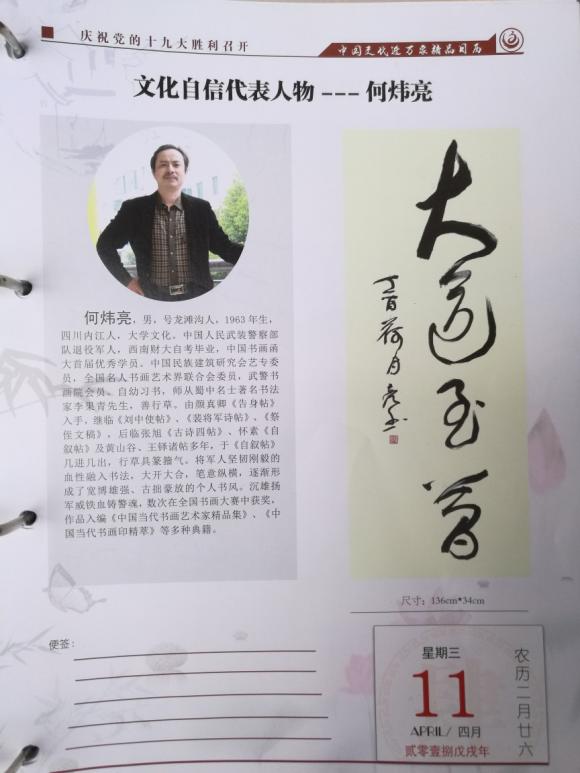 庆祝党的十九大胜利召开
中国 精品日历
文化自信代表人物---何炜亮
何炜亮，男，号龙滩沟人，1963 年生，
四川内江人，大学文化。中国人民武装警察部
队退役军人，西南财大自考毕业，中国书画函
大首届优秀学员。中国民族建筑研究会艺专委
委员，全国名人书画艺术界联合会委员，武警书
画院会员。自幼习书，师从蜀中名士著名书法
家李果青先生，善行草。由颜真卿《告身帖》
入手，继临《刘中使帖》、《裴将军诗帖》、《祭
侄文稿》，后临张旭《古诗四帖》、怀素《自
叙帖》及黄山谷、王铎诸帖多年，于《自叙帖》
几进几出，行草具篆籀气。将军人坚韧刚毅的
血性融入书法，大开大合，笔意纵横，逐渐形
成了宽博雄强、古拙豪放的个人书风。沉雄扬
军威铁血铸警魂，数次在全国书画大赛中获奖，
作品入编《中国当代书画艺术家精品集》、《中
国当代书画印精萃》等多种典籍。
大道至简
丁酉荷月亮书
尺寸：136cm*34cm
便签：
星期三
11
APRIL/ 四月
贰零壹捌戊戌年
农历二月廿六